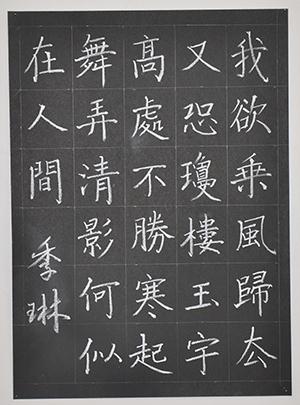 我欲乘風歸厺
又恐瓊樓玉宇
髙處不勝寒起
舞弄清影何似
在人間
季琳